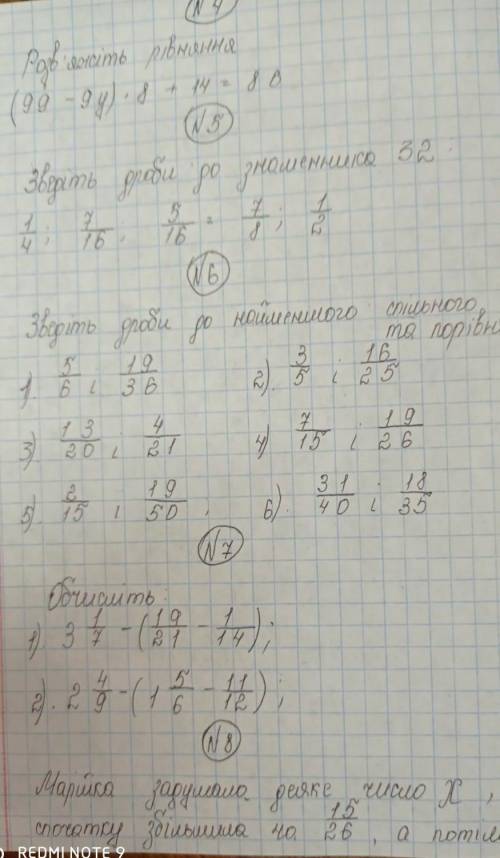 N4
Розв'яжіть рівняння
(99 - 9y) · 8 + 14 = 80
N5
Зведіть дроби до знаменника 32:
1/4; 7/16; 5/16 = 7/8; 1/2
N6
Зведіть дроби до найменшого спільного,
та порівн
1). 5/6 і 19/36 2). 3/5 і 16/25
3) 13/20 і 4/21 4) 7/15 і 19/26
5). 2/15 і 19/50. 6). 31/40 і 18/35
N7
Обчисліть:
1) 3 1/7 - (19/21 - 1/14);
2). 2 4/9 - (1 5/6 - 11/12);
N8
Марійка задумала деяке число X,
спочатку збільшила на 15/26, а потім
REDMI NOTE 9